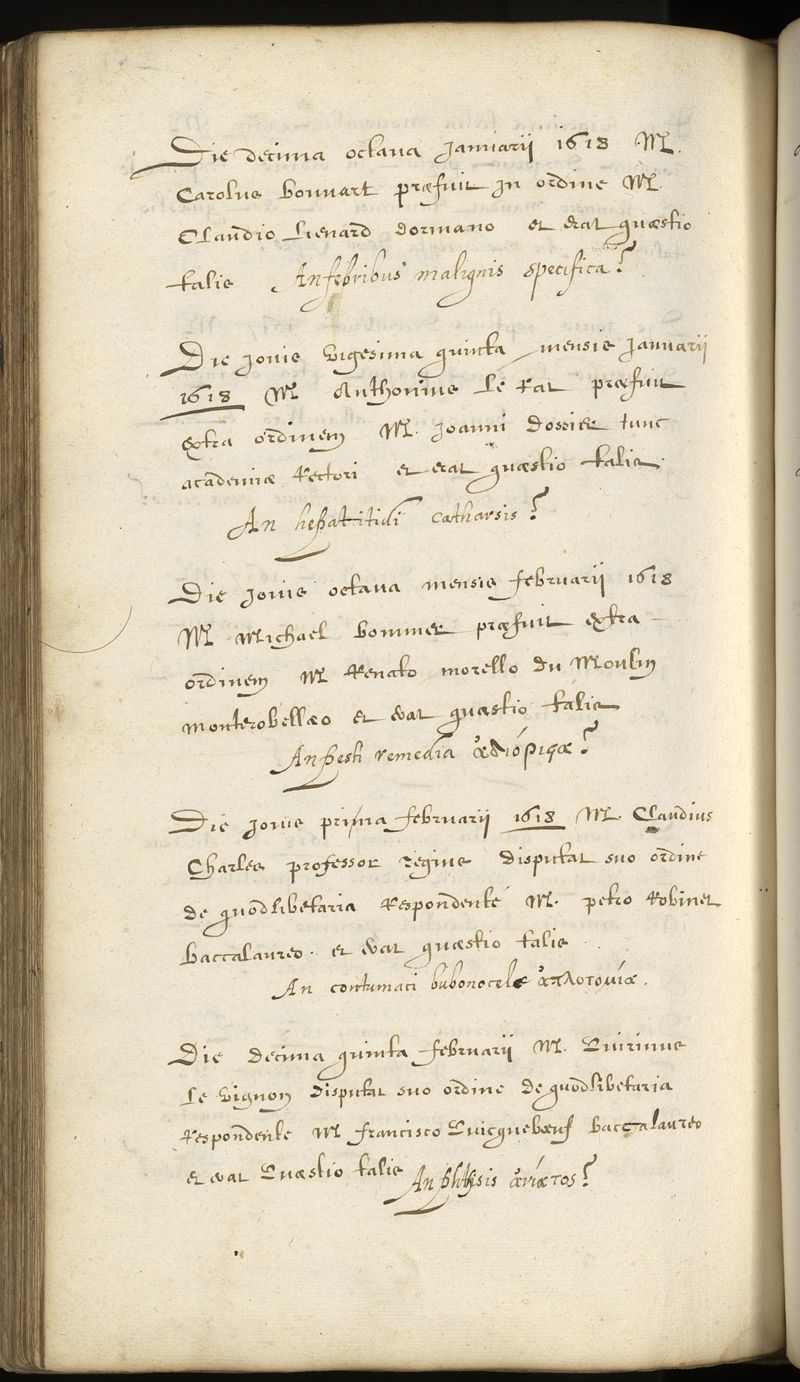 Die decima octava Januarii 1618 M.
Carolus Bouvart præfuit in ordine M.
Claudio Lienard dormano et erat quæstio
talis An febribus malignis specifica?
Die Jovis vigesima quinta mensis Januarii
1618 M Anthonius Le Rat præfuit
extra ordinem M. Joanni Dossier tunc
academiæ Rectori et erat quæstio talis
An hepatitidi catharsis?
Die Jovis octava mensis februarii 1618
M Michael Bommer præfuit extra
ordinem M Renato morello du Moulin
monterobellæo et erat quæstio talis
An pesti remedia ἀδιόριςα?
Die Jovis prima februarii 1618 M. Claudius
Charles professor regius disputat suo ordine
de quodlibetaria Respondente M. petro Robinet
Baccalaureo. et erat quæstio talis
An contumaci bubonocele ἁπλοτομία.
Die decima quinta februarii M. Quirinus
Le Vignon disputat suo ordine de quodlibetaria
Respondente M francisco Quicquebœuf baccalaureo
et erat Quæstio talis An phthisis ἀνίατος?